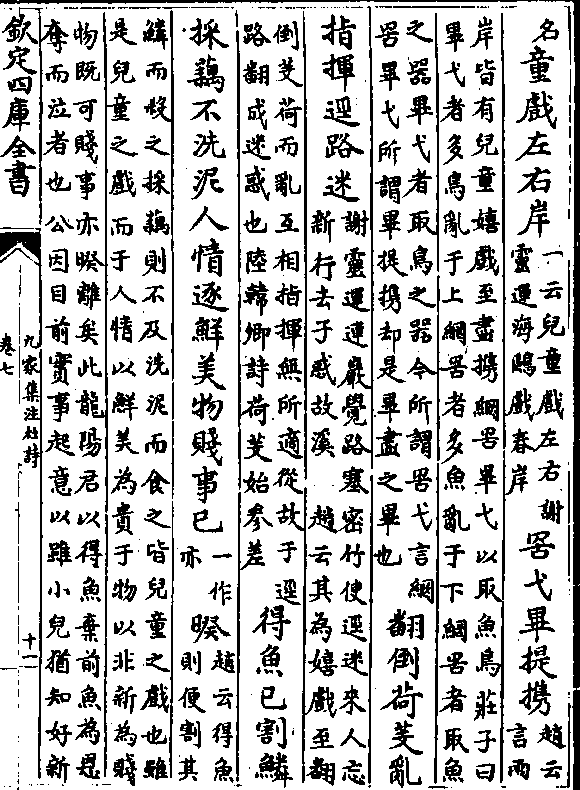 名童戲左右岸一云兒童戲左右 謝
靈運海鷗戲春岸罟弋畢提攜趙云
言兩
岸皆有兒童嬉戲至盡攜網罟畢弋以取魚鳥莊子曰
畢弋者多鳥亂于上網罟者多魚亂于下網罟者取魚
之器畢弋者取鳥之器今所謂罟弋言網
罟畢弋所謂畢提攜却是畢盡之畢也翻倒荷芰亂
指揮逕路迷謝靈運連巖覺路塞密竹使逕迷來人忘
新行去子惑故溪 趙云其為嬉戲至翻
倒芰荷而亂互相指揮無所適從故于逕
路翻成迷惑也陸韓卿詩荷芰始參差得魚已割鱗
採藕不洗泥人情逐鮮美物賤事已一作
亦睽趙云得魚
則便割其
鱗而收之採藕則不及洗泥而食之皆兒童之戲也雖
是兒童之戲而于人情以鮮美為貴于物以非新為賤
物既可賤事亦睽離矣此龍陽君以得魚棄前魚為恩
奪而泣者也公因目前實事起意以雖小兒猶知好新
欽定四庫全書
九家集注杜詩
卷七
十一